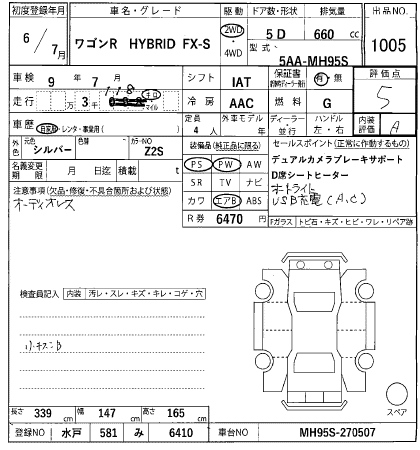 初度登録年月 車名・グレード 駆動 ドア数・形状 排気量 出品NO
6/7月 ワゴンR HYBRID FX-S 2WD・4WD 5 D 660 cc 1005
型式 5AA-MH95S
車検 9年 7月 シフト IAT 保証書 有・無 評価点
走行 万 3千 キロ マイル 冷房 AAC 燃料 G 5
車歴 自家用・レンタ・事業用( ) 定員 4人 外車モデル 年 ディーラー 並行 ハンドル 左・右 内装評価 A
外色 元色 シルバー 色替 カラーNO Z2S 装備品(純正品に限る) セールスポイント(正常に動作するもの)
名義変更期限 月 日迄 積載 t PS PW AW デュアルカメラブレーキサポート
注意事項(欠品・修復・不具合箇所および状態) SR TV ナビ D席シートヒーター
オーディオレス カワ エアB ABS オートライト
USB充電(A,C)
R券 6470 円 Fガラス トビ石・キズ・ヒビ・ワレ・リペア跡
検査員記入 内装 汚レ・スレ・キズ・キレ・コゲ・穴
小キズB
スペア
長さ 339 cm 幅 147 cm 高さ 165 cm
登録NO 水戸 581 み 6410 車台NO MH95S-270507